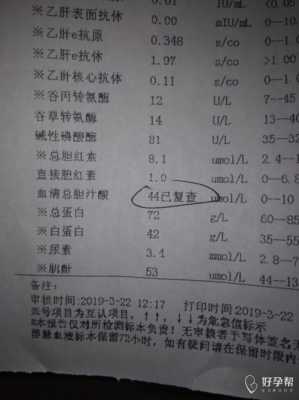 ※乙肝表面抗体 0.00 mIU/mL
※乙肝e抗原 0.348 s/co
※乙肝e抗体 1.97 s/co >1.00
※乙肝核心抗体 0.11 s/co
※谷丙转氨酶 12 U/L 7--45
谷草转氨酶 14 U/L
碱性磷酸酶 81 U/L 35--
※总胆红素 8.1 umol/L 2.4--1
直接胆红素 1.0 umol/L 0--6.8
血清总胆汁酸 44已复查 umol/L 0--10
※总蛋白 72 g/L 60--85
※白蛋白 42 g/L 35--55
※尿素 mmol/L 2.8--7
※肌酐 53 umol/L 44--13
备注：
审核时间:2019-3-22 12:17 打印时间:2019-3-22
号项目为互认项目，↑↑，↓↓为危急值标示
本报告仅对所检测标本负责！无审核者手写体签名无
血液标本保留72小时，如有疑问请在保留时限内
好孕帮